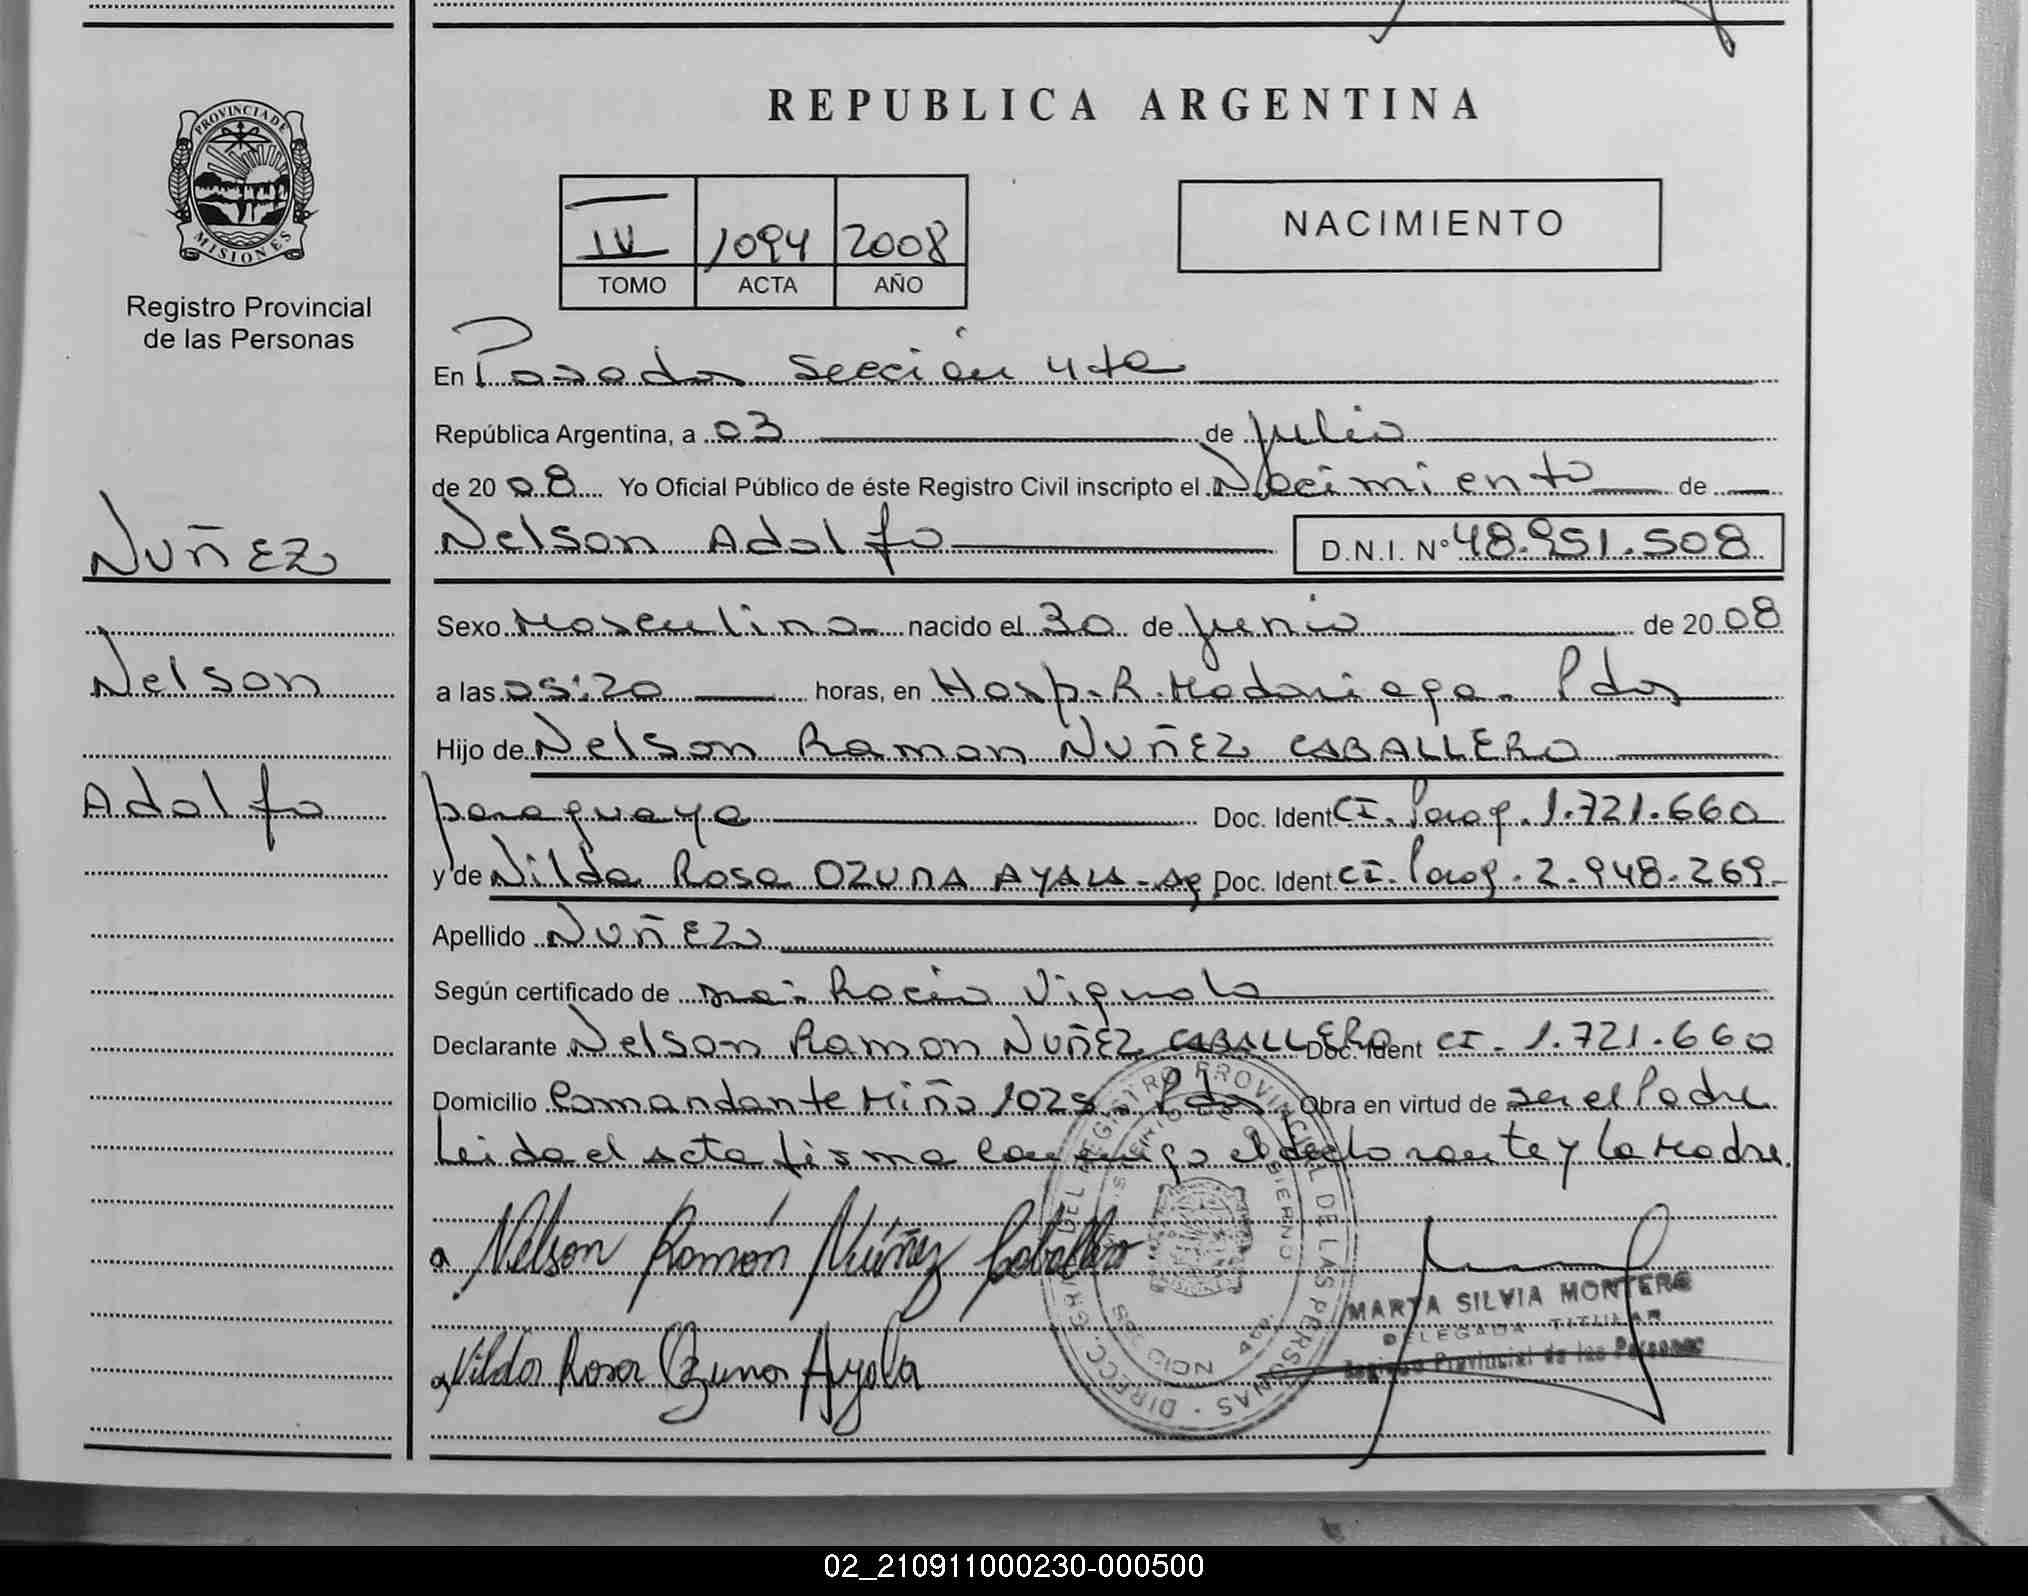 REPUBLICA ARGENTINA
PROVINCIA DE
MISIONES
Registro Provincial
de las Personas
IV 1094 2008
TOMO ACTA AÑO
NACIMIENTO
En Posadas sección 4ta
República Argentina, a 03 de julio
de 20 08 Yo Oficial Público de éste Registro Civil inscripto el Nacimiento de
Nelson Adolfo D.N.I. N° 48.951.508
NUÑEZ
Nelson
Adolfo
Sexo Masculino nacido el 30 de junio de 20 08
a las 05:20 horas, en Hosp. R. Madariaga. Pdas
Hijo de Nelson Ramon NUÑEZ CABALLERO
paraguaya Doc. Ident CI. Parag. 1.721.660
y de Nilda Rosa OZUNA AYALA - Doc. Ident CI. Parag. 2.948.269-
Apellido NUÑEZ
Según certificado de Rocio Vignola
Declarante Nelson Ramon NUÑEZ CABALLERO Doc. Ident CI. 1.721.660
Domicilio Comandante Miño 1025. Pdas Obra en virtud de ser el Padre
Leida el acta firma conmigo el declarante y la Madre.
Nelson Ramón Núñez Caballero
Nilda Rosa Ozuna Ayala
DIRECC. GRAL. DEL REGISTRO PROVINCIAL DE LAS PERSONAS
MARTA SILVIA MONTERO
DELEGADA TITULAR
Registro Provincial de las Personas
02_210911000230-000500